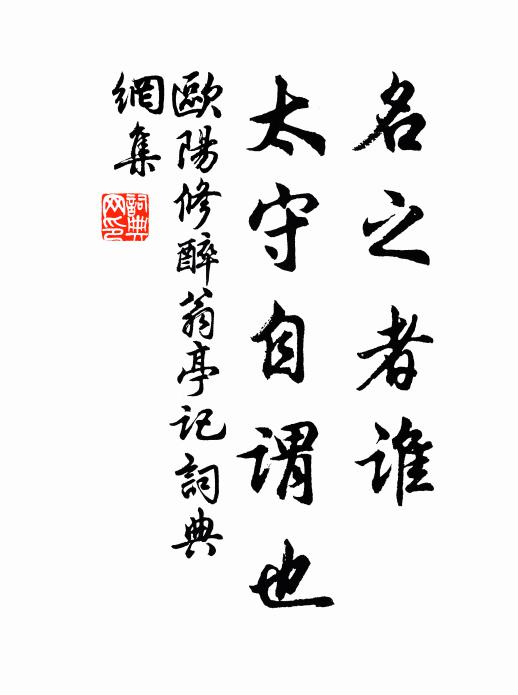 名之者谁
太守自谓也
歐陽修醉翁亭記詞典
網集
詞典
网印